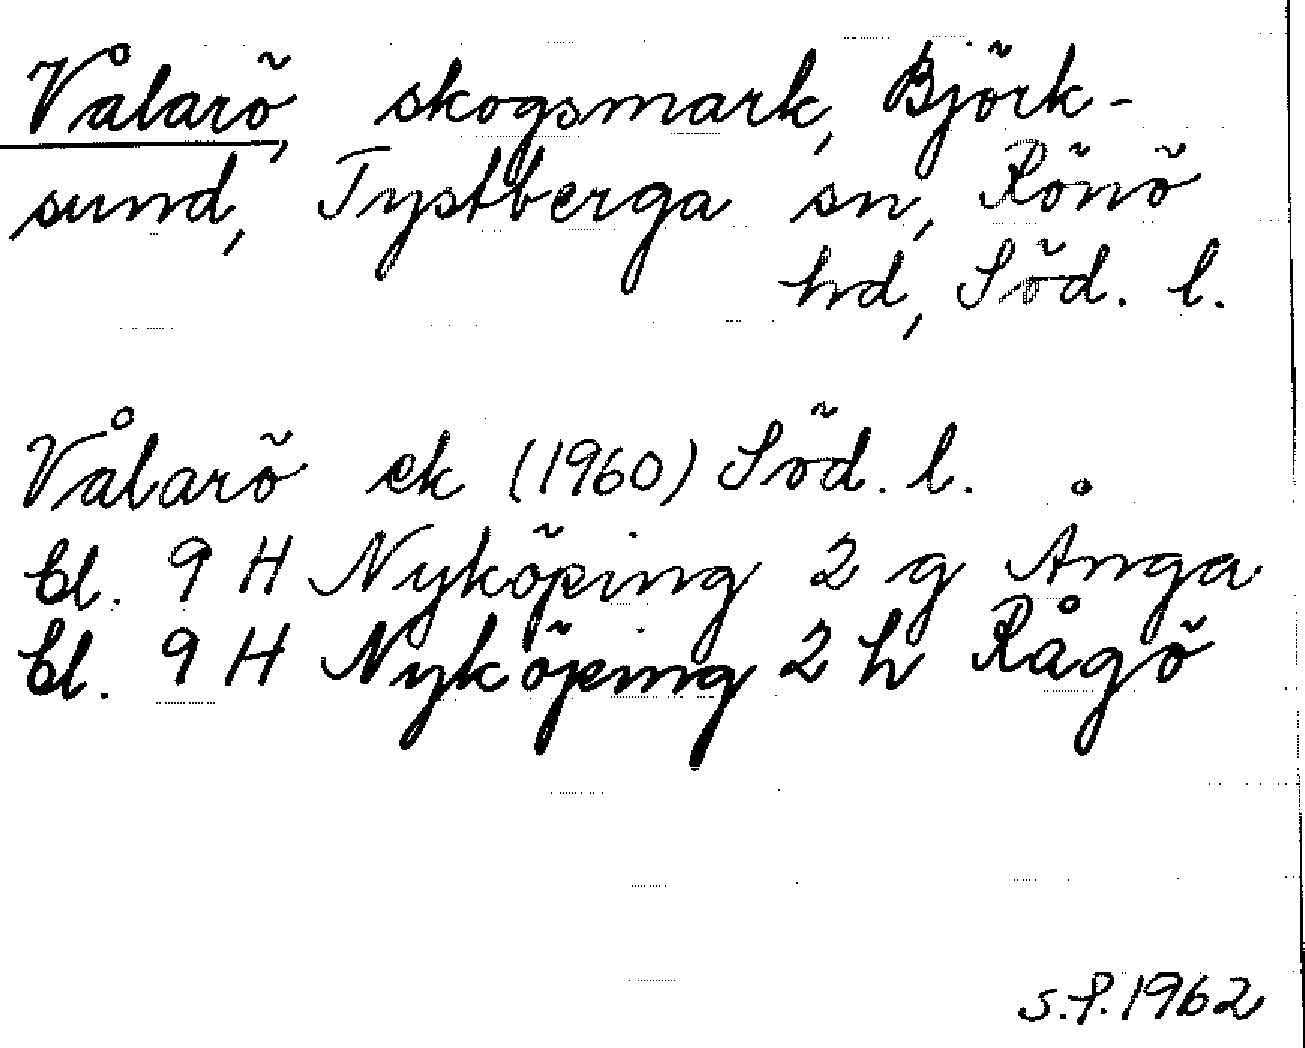 Vålarö, skogsmark, Björk-
sund, Tystberga sn, Rönö
hd, Söd. l.
Vålarö ek (1960) Söd. l.
bl. 9 H Nyköping 2 g Ånga
bl. 9 H Nyköping 2 h Rågö
s.f. 1962